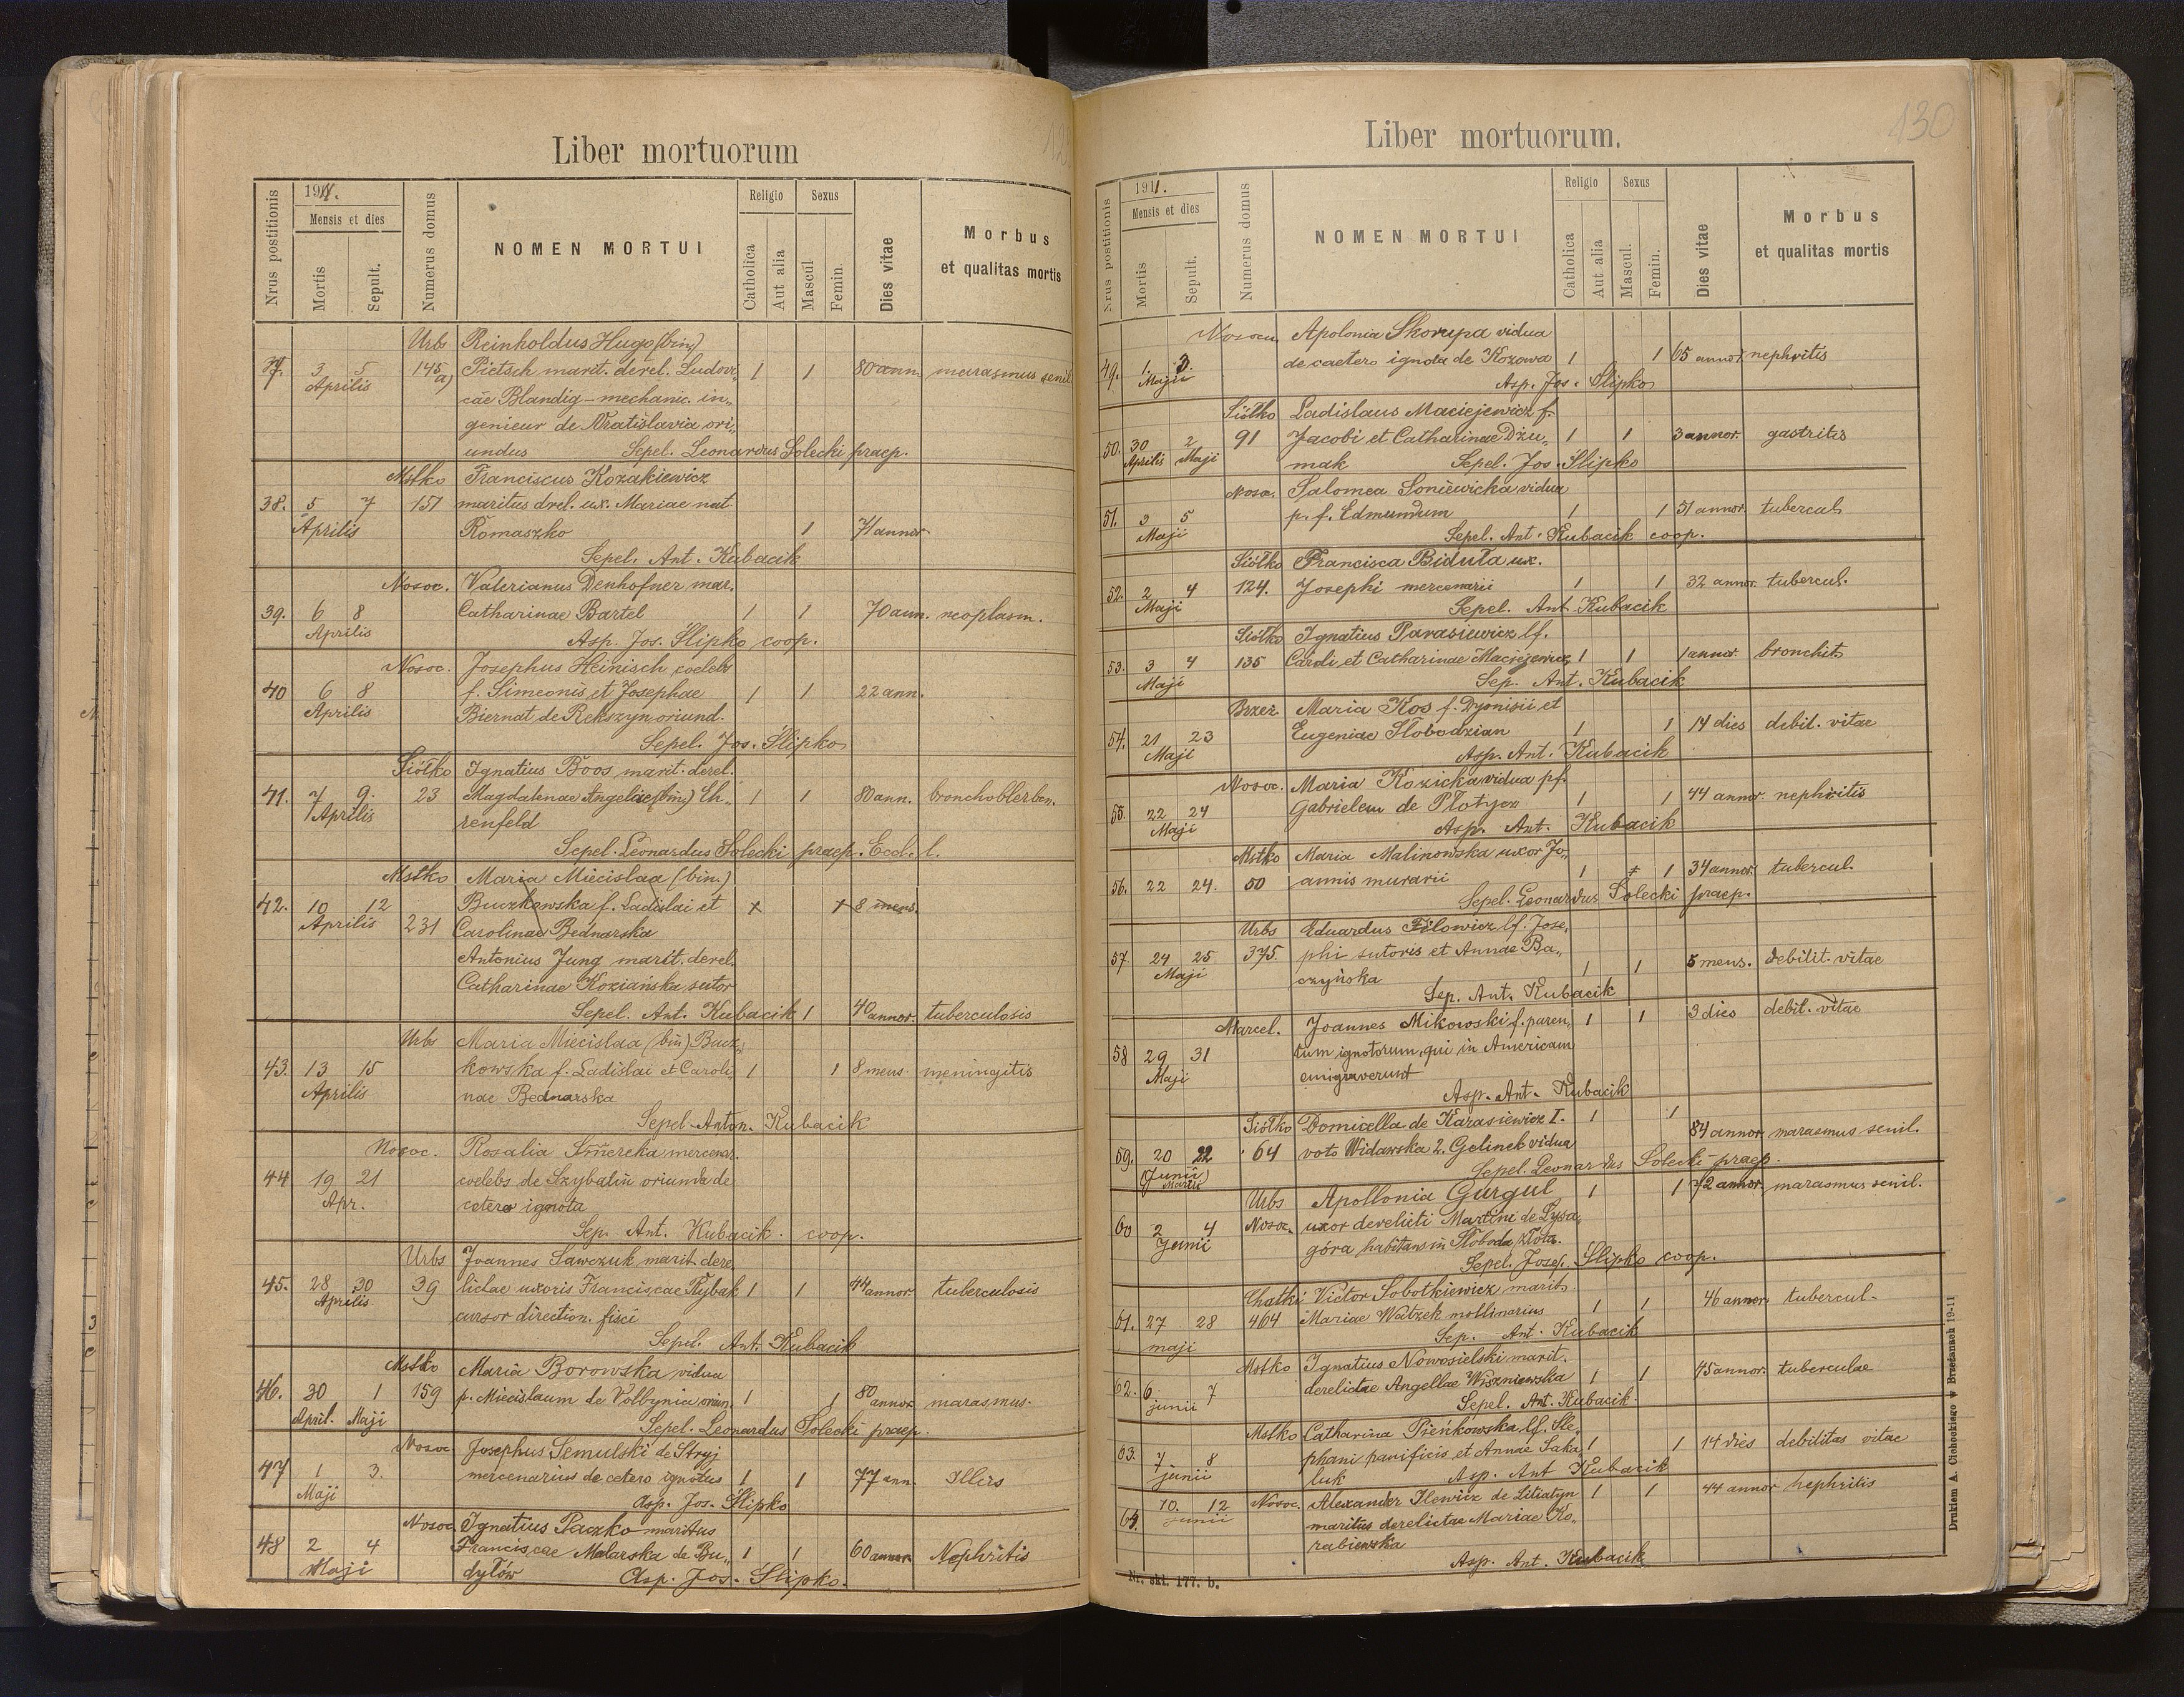 Liber mortuorum
Nrus postitionis
1911.
Mensis et dies
Mortis
Sepult.
Numerus domus
NOMEN MORTUI
Religio
Catholica
Aut alia
Sexus
Mascul
Femin.
Dies vitae
Morbus
et qualitas mortis
Urbs Reinholdus Hugo (bin)
37. 3 5 145 a) Pietsch marit. derel. Ludovi„ 1 1 80 ann. marasmus senil.
Aprilis
cae Blandig - mechanic. in„
genieur de Wratislavia ori„
undus Sepel. Leonardus Solecki praep.
Mstko Franciscus Kozakiewicz
38. 5 7 151 maritus drel. ux. Mariae nat.
Aprilis Romaszko 1 71 annor.
Sepel. Ant. Kubacik
Nosoc. Valerianus Denhofner mar.
39. 6 8 Catharinae Bartel 1 1 70 ann. neoplasm.
Aprilis Asp. Jos. Ślipko coop.
Nosoc. Josephus Heinisch coelebs
40 6 8 f. Simeonis et Josephae 1 1 22 ann.
Aprilis Biernat de Rekszyn oriund.
Sepel. Jos. Ślipko
Siółko Ignatius Boos marit. derel.
41. 7 9. 23 Magdalenae Angelae (bin) Eh„ 1 1 80 ann.
Aprilis renfeld
Sepel. Leonardus Solecki praep. Eccl. l.
Mstko Maria Miecislaa (bin.)
42. 10 12 Buczkowska f. Ladislai et 8 mens.
Aprilis 231 Carolinae Bednarska
Antonius Jung marit. derel.
Catharinae Koziańska sutor
Sepel. Ant. Kubacik 1 40 annor. tuberculosis
Urbs Maria Miecislaa (bin) Bucz„
43. 13 15 kowska f. Ladislai et Caroli„ 1 1 8 mens. meningitis
Aprilis nae Bednarska
Sepel. Anton. Kubacik
Nosoc. Rosalia Smereka mercenar.
44 19 21 coelebs de Szybalin oriunda de
Apr. cetero ignota
Sep. Ant. Kubacik. coop.
Urbs Joannes Sawczuk marit. dere„
45. 28 30 39 lictae uxoris Franciscae Rybak 1 1 44 annor. tuberculosis
Aprilis cursor direction. fisci
Sepel. Ant. Kubacik
Mstko Maria Borowska vidua
46. 30 1 159 p. Miecislaum de Volhynia oriun. 1 1 80 annor. marasmus.
April. Maji Sepel. Leonardus Solecki praep.
Nosoc Josephus Semulski de Stryj
47 1 3. mercenarius de cetero ignotus 1 1 77 ann.
Maji Asp. Jos. Ślipko
Nosoc. Ignatius Paczko maritus
48 2 4 Franciscae Malarska de Bu„ 1 1 60 annor. Nephritis
Maji dyłów Asp. Jos. Ślipko.
Liber mortuorum.
130
Nrus postitionis
1911.
Mensis et dies
Mortis
Sepult.
Numerus domus
NOMEN MORTUI
Religio
Catholica
Aut alia
Sexus
Mascul.
Femin.
Dies vitae
Morbus
et qualitas mortis
Nosocu. Apolonia Skorupa vidua
49. 1. 3. de caetero ignota de Kozowa 1 1 65 annor. nephritis
Maji Asp. Jos. Ślipko
Siółko Ladislaus Maciejewicz f.
50. 30 2 91 Jacobi et Catharinae Dżu„ 1 1 3 annor. gastritis
Aprilis Maji mak Sepel. Jos. Ślipko
Nosoc. Salomea Soniewicka vidua
51. 3 5 p. f. Edmundum 1 1 51 annor. tubercul.
Maji Sepel. Ant. Kubacik coop.
Siółko Francisca Biduła ux.
52. 2 4 124. Josephi mercenarii 1 1 32 annor. tubercul.
Maji Sepel. Ant. Kubacik
Siółko Ignatius Parasiewicz lf.
53. 3 4 135 Caroli et Catharinae Maciejewicz 1 1 1 annor. bronchit.
Maji Sep. Ant. Kubacik
Brzeż. Maria Kos f. Dyonisii et
54. 21 23 Eugeniae Słobodzian 1 1 14 dies debil. vitae
Maji Asp. Ant. Kubacik
Nosoc. Maria Kozicka vidua pf.
55. 22 24 Gabrielem de Płotycz 1 1 44 annor. nephritis
Maji Asp. Ant. Kubacik
Mstko Maria Malinowska uxor Jo„
56. 22 24. 50 annis murarii 1 1 34 annor. tubercul.
Sepel. Leonardus Solecki praep.
Urbs Eduardus Filowicz lf. Jose„
57 24 25 375. phi sutoris et Annae Ba„ 1 1 5 mens. debilit. vitae
Maji czyńska
Sep. Ant. Kubacik
Marcel. Joannes Mikowski f. paren„ 1 1 3 dies debil. vitae
58 29 31 tum ignotorum, qui in Americam
Maji emigraverunt
Asp. Ant. Kubacik
Siółko Domicella de Karasiewicz I. 1 1 84 annor. marasmus senil.
59. 20 22 64 voto Widawska 2. Gelinek vidua
(Junii) Martii Sepel. Leonardus Solecki praep.
Urbs Apollonia Gurgul 1 1 72 annor. marasmus senil.
60 2 4 Nosoc. uxor derelicti Martini de Łysa„
Junii góra habitans in Słoboda złota.
Sepel. Josef. Ślipko coop.
Chatki Victor Sobotkiewicz marit.
61. 27 28 464 Mariae Watzek mollinarius 1 1 46 annor. tubercul.
maji Sep. Ant. Kubacik
Mstko Ignatius Nowosielski marit.
62. 6 7 derelictae Angellae Wiszniewska 1 1 45 annor. tuberculae
junii Sepel. Ant. Kubacik.
Mstko Catharina Pieńkowska lf. Ste„
63. 7 8 phani panificis et Annae Saka„ 1 1 14 dies debilitas vitae
junii luk Asp. Ant Kubacik
10. 12 Nosoc. Alexander Ilewicz de Litiatyn 1 1 44 annor nephritis
64. junii maritus derelictae Mariae Ko„
rabiewska
Asp. Ant. Kubacik
Nr. skł. 177. b.
Drukiem A. Cichockiego w Brzeżanach 19-11